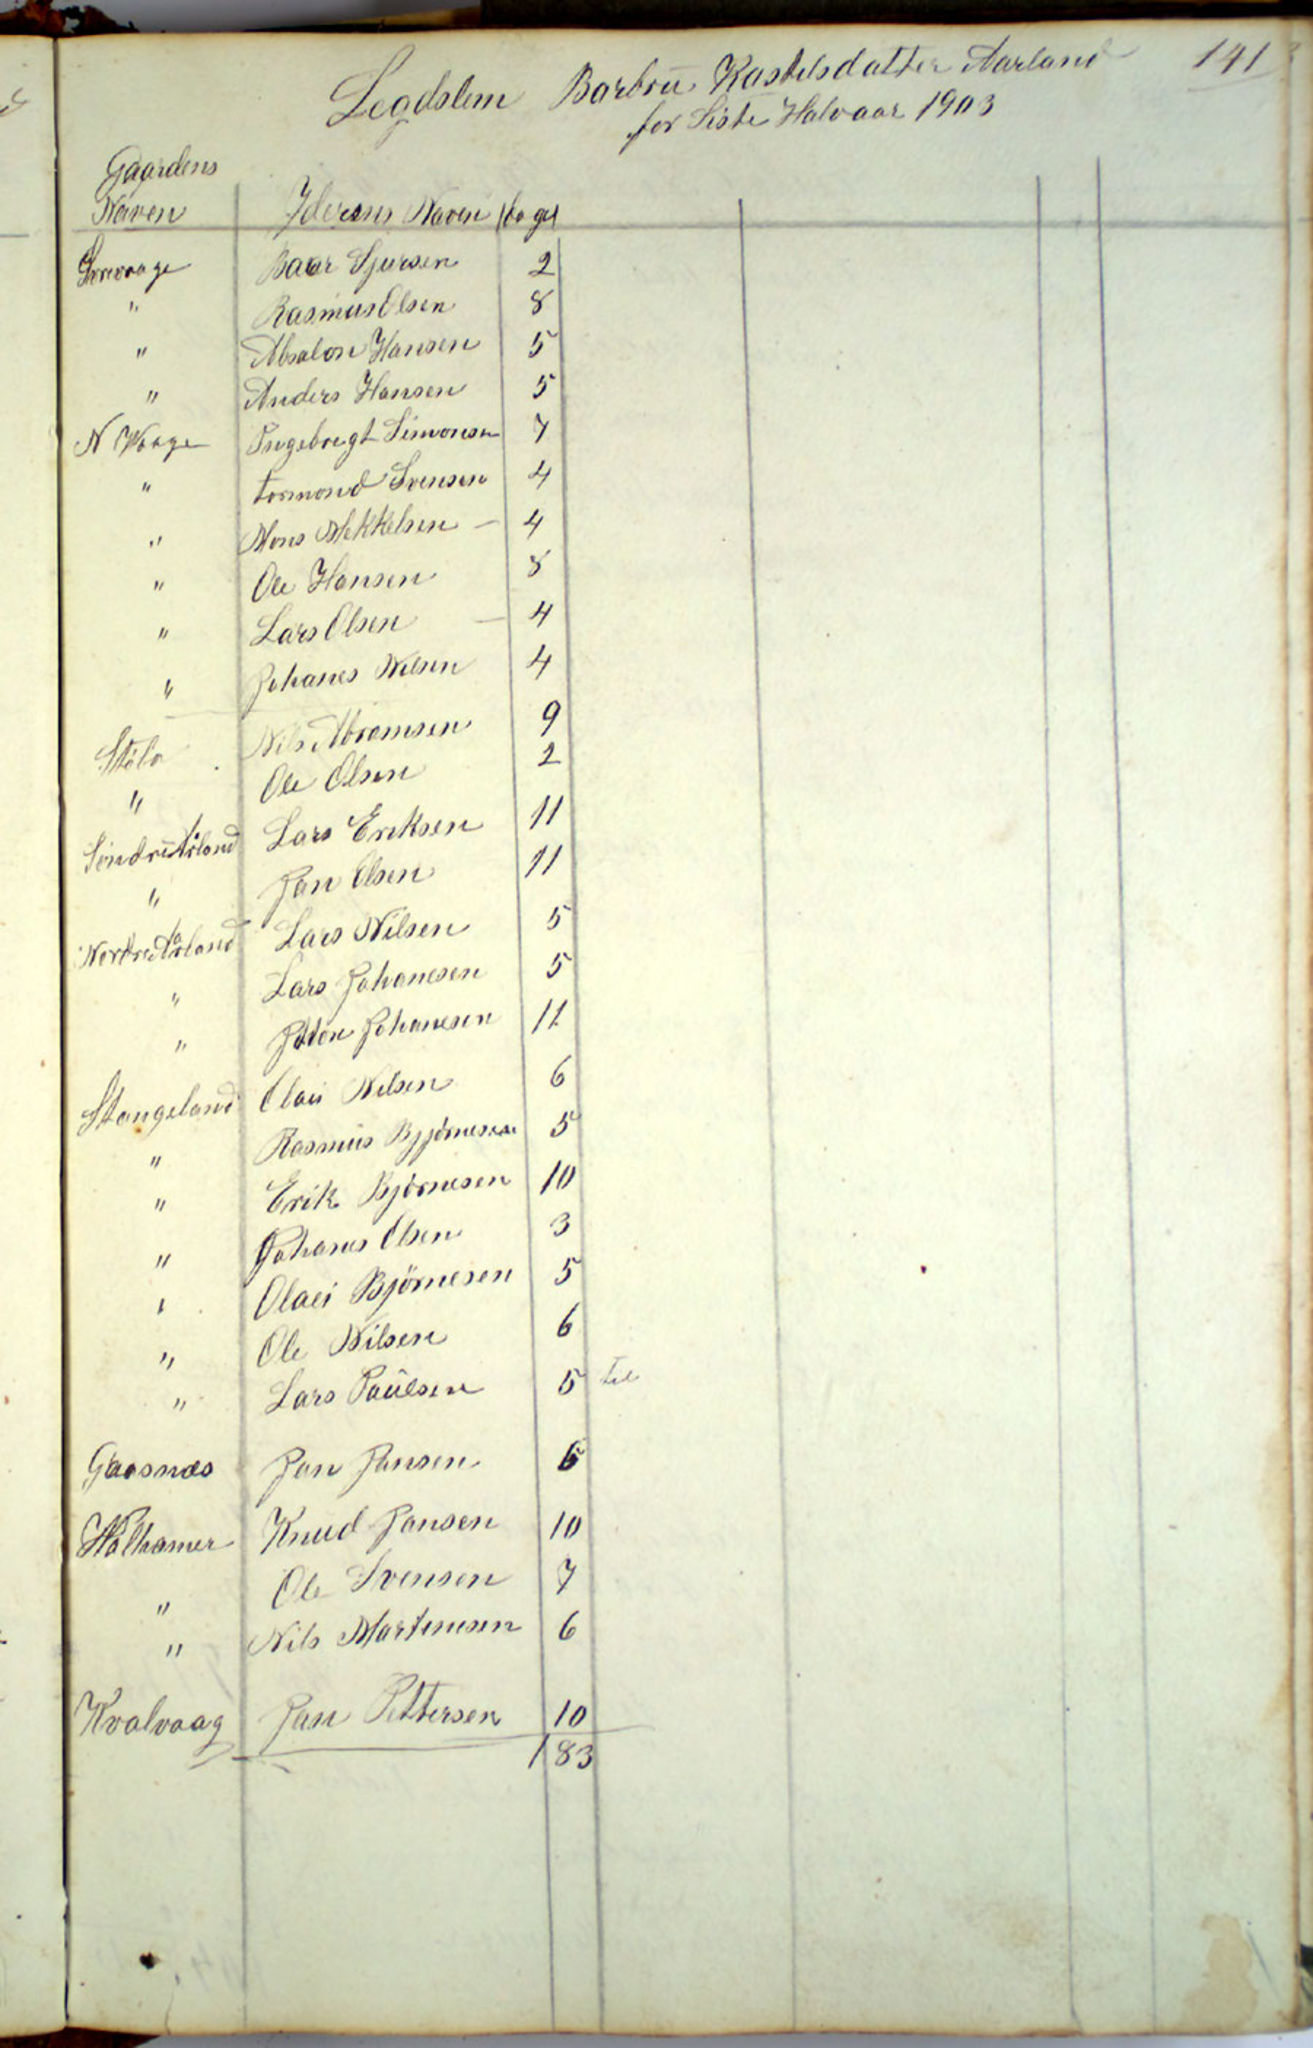 141
Legdslem Barbru Kastelsdatter Aarland
for Siste Halvaar 1903
Gaardens
Naven Yderens Naven dage
Baar Sjursen 2
" Rasmus Olsen 8
" Absalon Hansen 5
" Anders Hansen 5
N Waage Ingebregt Simonsen 7
" Tormond Svensen 4
" Mons Mekkelsen - 4
" Ole Hansen 8
" Lars Olsen - 4
" Johanes Nilsen 4
Støle Nils Abramsen 9
" Ole Olsen 2
Søndre Arland Lars Eriksen 11
" Jan Olsen 11
Nordre Aarland Lars Nilsen 5
" Lars Johanesen 5
" Johanesen 11
Stangeland Olai Nilsen 6
" Rasmus Bjørnesen 5
" Erik Bjørnesen 10
" Johanes Olsen 3
" Olaei Bjørnesen 5
" Ole Nilsen 6
" Lars Paulsen 5 til
Gaasnæs Jan Jansen 6
Halhamer Knud Jansen 10
" Ole Svensen 7
" Nils Martinesen 6
Kvalvaag Jan Pettersen 10
183